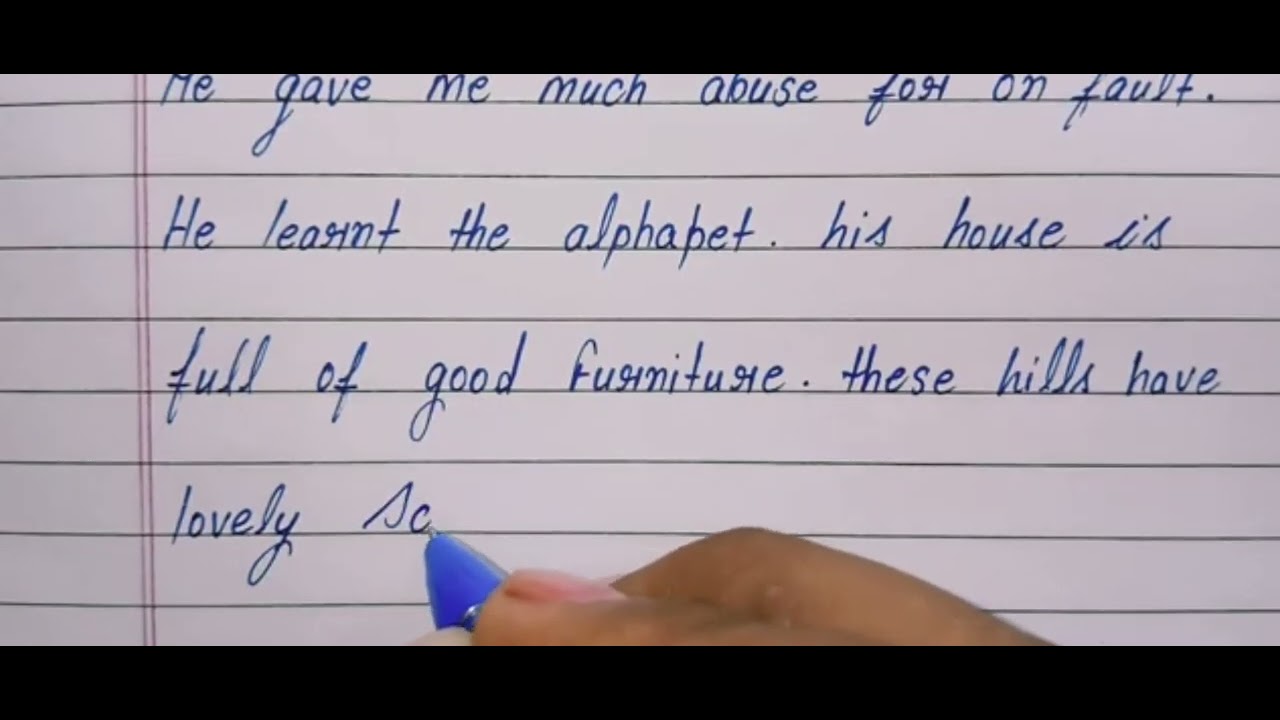 He gave me much abuse for on fault.
He learnt the alphapet. his house is
full of good furniture. these hills have
lovely Sc